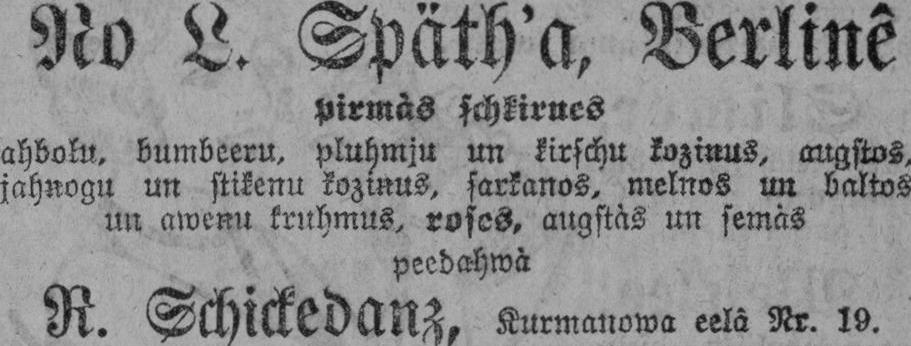 No L. Späth'a, Berlinê
pirmàs schkirnes
ahbolu, bumbeeru, pluhmju un kirschu kozinus, augstos,
jahnogu un stikenu kozinus, sarkanos, melnos un baltos
un awenu kruhmus, roses, augstàs un semàs
peedahwà
R. Schickedanz, Kurmanowa eelâ Nr. 19.